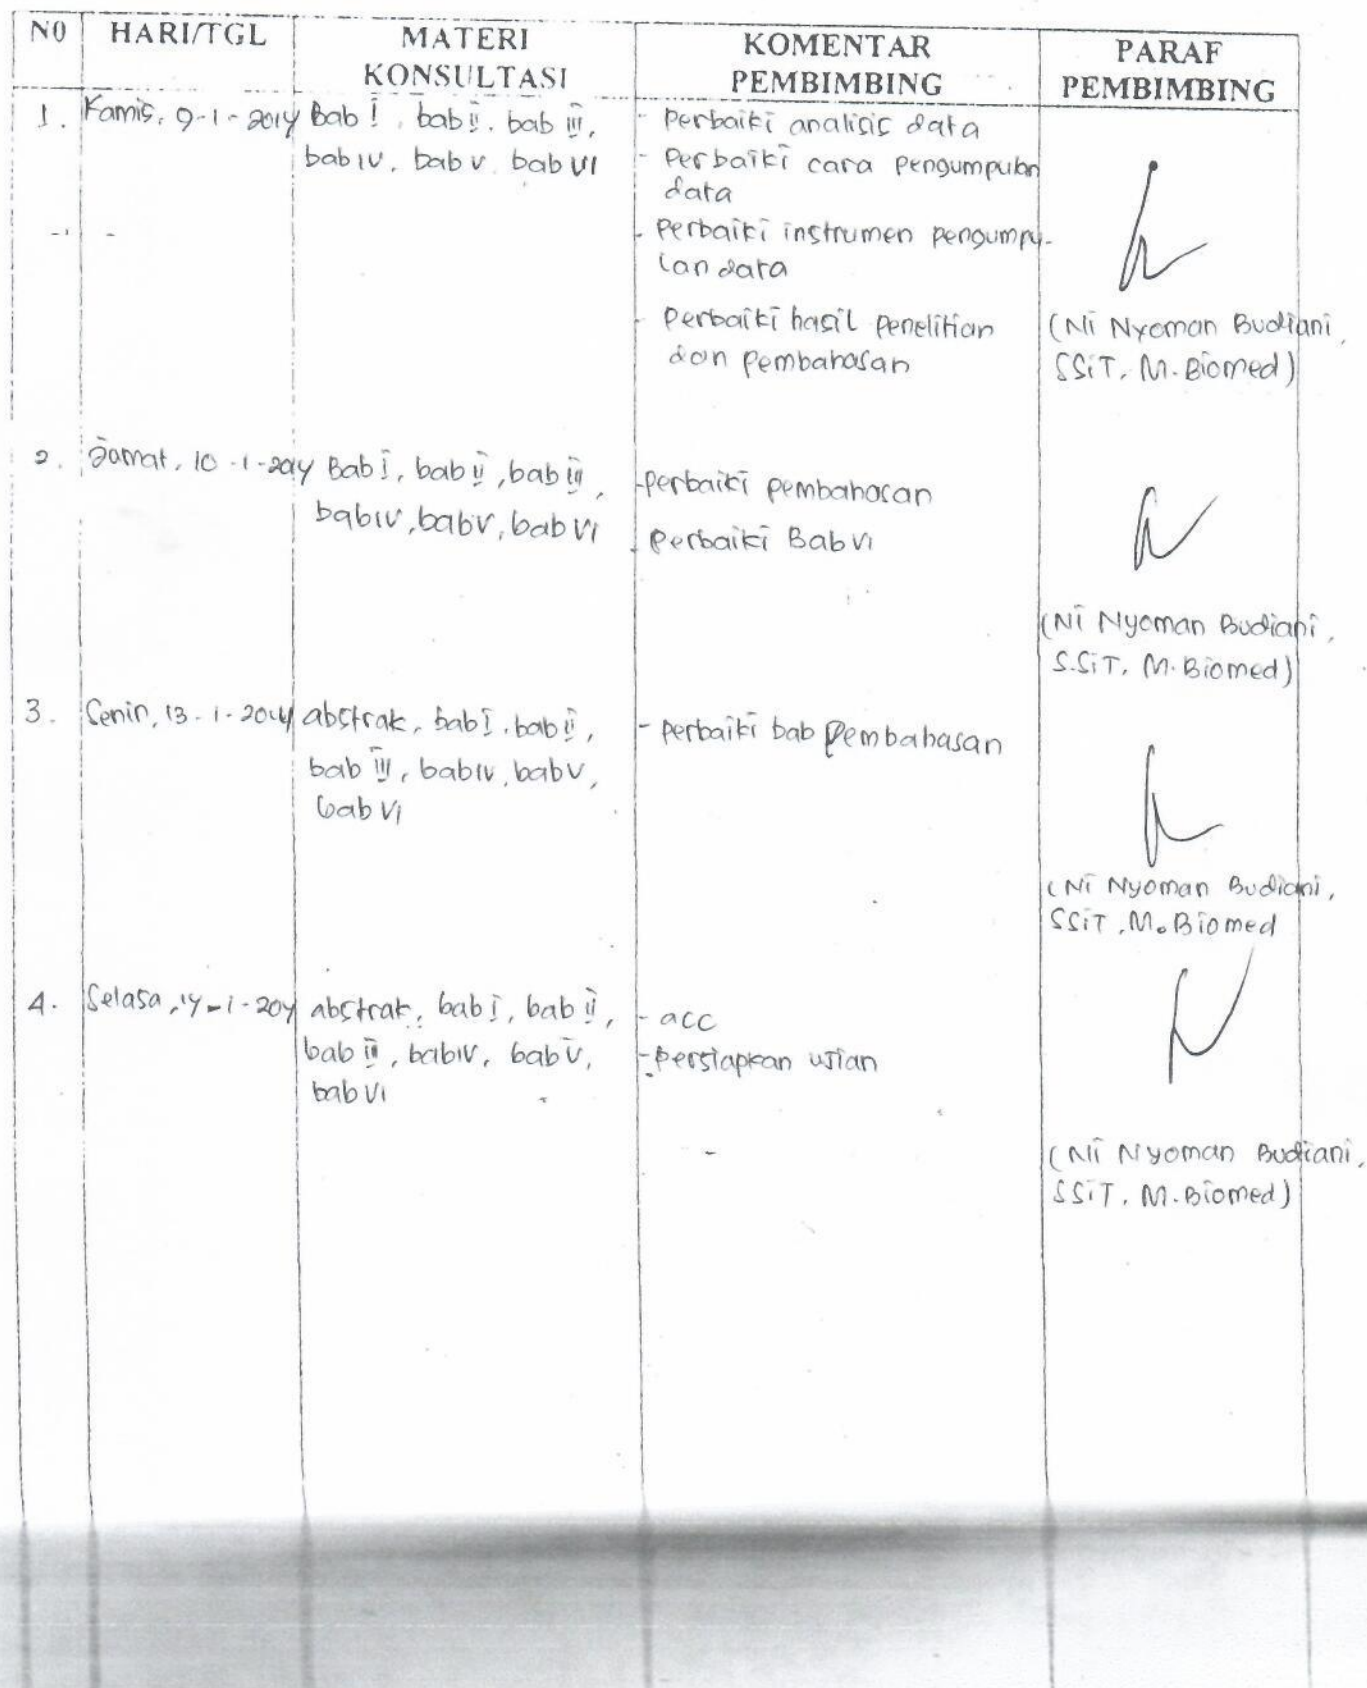 N0 HARI/TGL MATERI KONSULTASI KOMENTAR PEMBIMBING PARAF PEMBIMBING
1. Kamis, 9-1-2014
Bab I, bab II, bab III,
bab IV, bab V, bab VI
- Perbaiki analisis data
- Perbaiki cara pengumpulan
data
- Perbaiki instrumen pengumpu-
lan data
- Perbaiki hasil penelitian
dan pembahasan
(Ni Nyoman Budiani,
SSiT, M.Biomed)
2. Jamat, 10-1-2014
Bab I, bab II, bab III,
bab IV, bab V, bab VI
- perbaiki pembahasan
- Perbaiki Bab VI
(Ni Nyoman Budiani,
S.SiT, M.Biomed)
3. Senin, 13-1-2014
abstrak, bab I, bab II,
bab III, bab IV, bab V,
bab VI
- perbaiki bab pembahasan
(Ni Nyoman Budiani,
SSiT, M.Biomed
4. Selasa, 14-1-2014
abstrak, bab I, bab II,
bab III, bab IV, bab V,
bab VI
- acc
- persiapkan ujian
(Ni Nyoman Budiani,
SSiT, M.Biomed)